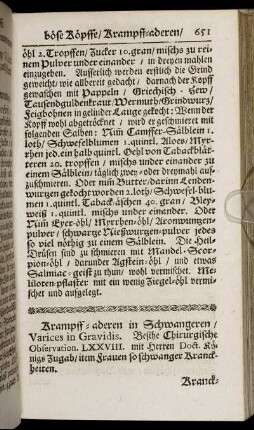 böse Köpffe/ Krampff-adern/ 651
öhl 2. Tropffen/ Zucker 10. gran/ mischs zu rei-
nem Pulver unter einander / in dreyen mahlen
einzugeben. Ausserlich werden erstlich die Grind
geweicht/ wie allbereit gedacht/ darnach der Kopff
mit Pappeln / Griechisch - Hew/
Tausendguldenkraut/ Wermuth/ Grindwurz/
Feigbohnen in gelinder Lauge gekocht: Wenn der
Kopf wohl abgetröcknet / wird er geschmieret mit
folgenden Salben: Nim Camffer-Sälblein 1.
loth/ Schwefelblumen 1. quintl. Aloes/ Myr-
rhen jed. ein halb quintl. Oehl von Tabackblät-
teren 20. tropffen / mischs unter einander zu
einem Sälblein/ täglich zwey-oder dreymahl auf-
zuschmieren. Oder nim Butter/ darinn Lenden-
wurtzen gekocht worden 2. loth/ Schwefel-blu-
men 1. quintl. Taback-äschen 40. gran/ Bley-
weiß 1. quintl. mischs unter einander. Oder
Nim Eyer-öhl/ Myrrhen-öhl/ Aronwurtzen-
pulver / schwartze Nießwurtzen-pulver jedes
so viel nöthig zu einem Sälblein. Die Heil-
Drüsen sind zu schmieren mit Mandel-Scor-
pion-öhl / darunder Agstein-öhl / und etwas
Salmiac-geist zu thun/ wohl vermischet. Me-
liloten-pflaster mit ein wenig Ziegel-öhl vermi-
schet und aufgelegt.
Krampff-aderen in Schwangeren/
Varices in Gravidis. Besihe Chirurgische
Observation. LXXVIII. mit Herren Doct. Kö-
nigs Zugab/ item Frauen so schwanger Kranck-
heiten.
Kranck-